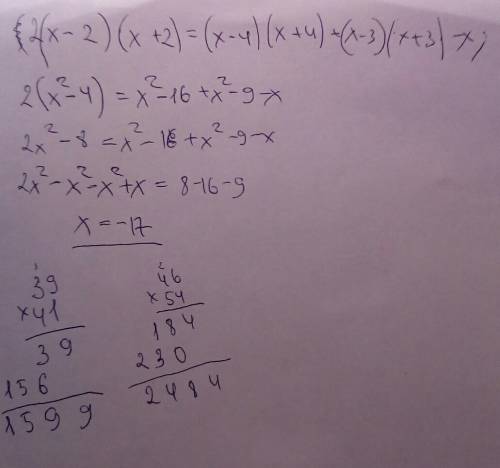 2(x-2)(x+2)=(x-4)(x+4)+(x-3)(x+3)-x;
2(x²-4)=x²-16+x²-9-x
2x²-8=x²-16+x²-9-x
2x²-x²-x²+x=8-16-9
x=-17
3
39
×41
39
156
1599
2
46
×54
184
230
2484